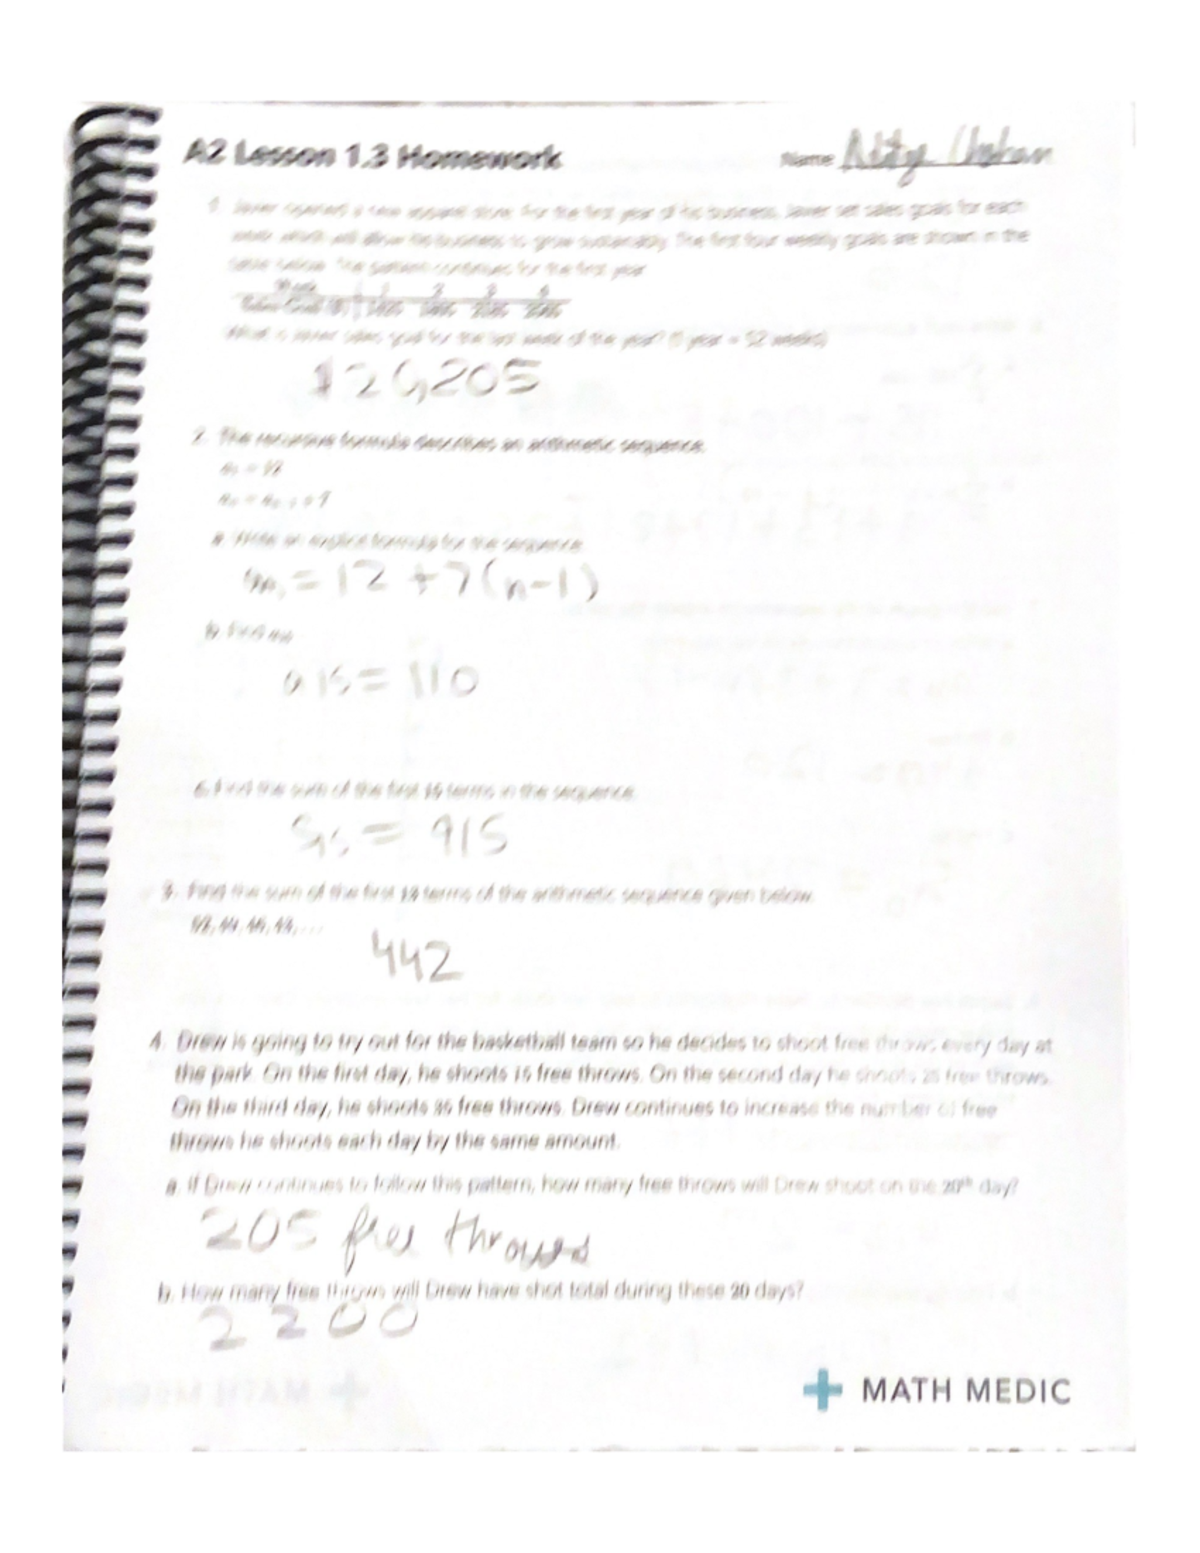 A2 Lesson 1.3 Homework
Name
1. Javier opened a new apparel store. For the first year of his business, Javier set sales goals for each
week which will allow his business to grow sustainably. The first four weekly goals are shown in the
table below. The pattern continues for the first year.
Week 1 2 3 4
Sales Goal ($)
What is Javier's sales goal for the last week of the year? (1 year = 52 weeks)
$26,205
2. The recursive formula describes an arithmetic sequence.
a₁ = 12
aₙ = aₙ₋₁ + 7
a. Write an explicit formula for the sequence.
= 12 + 7(n-1)
b. Find a₁₅
a15 = 110
c. Find the sum of the first 15 terms in the sequence.
S15 = 915
3. Find the sum of the first 13 terms of the arithmetic sequence given below.
442
4. Drew is going to try out for the basketball team so he decides to shoot free throws every day at
the park. On the first day, he shoots 15 free throws. On the second day he shoots 25 free throws.
On the third day, he shoots 35 free throws. Drew continues to increase the number of free
throws he shoots each day by the same amount.
a. If Drew continues to follow this pattern, how many free throws will Drew shoot on the 20th day?
205
b. How many free throws will Drew have shot total during these 20 days?
2200
MATH MEDIC